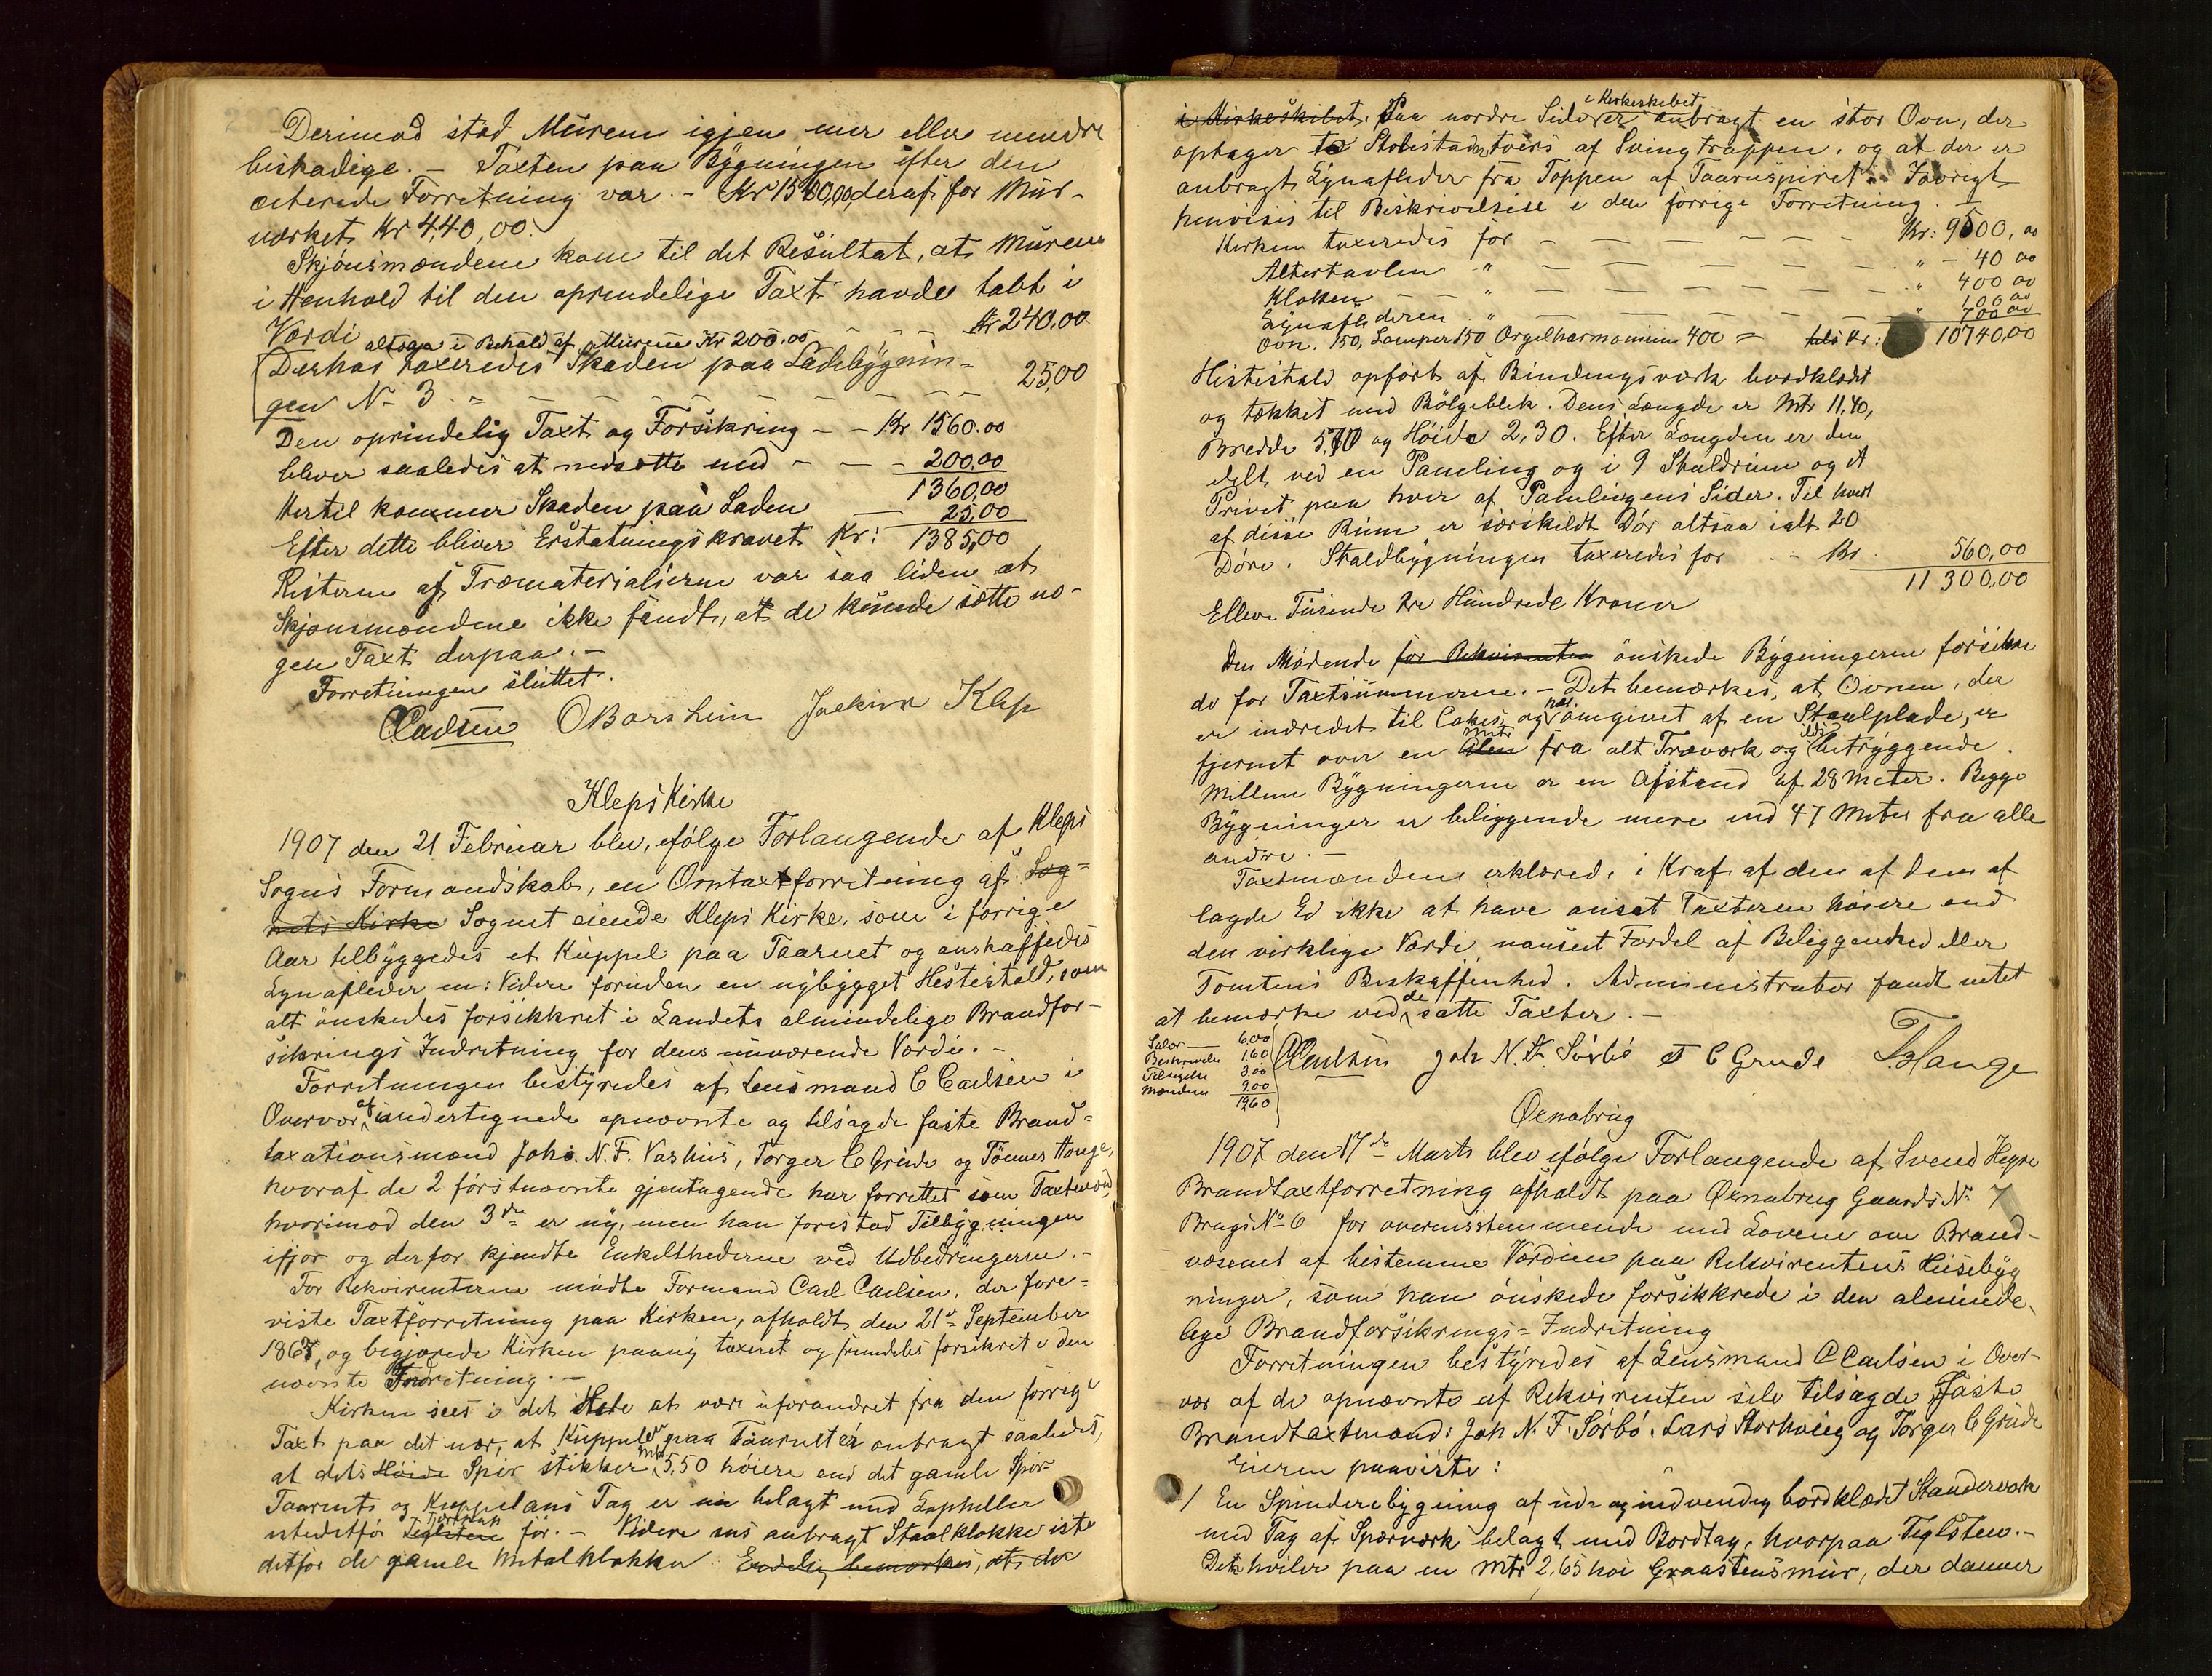 Derimod stod Murene igjen mer eller mendre
beskadige. — Taxten paa Bygningen efter den
citerede Forretning var. — Kr 1560,00, deraf for Mur-
værket Kr 440,00.
Skjønsmændene kom til det Resultat, at Murene
i Henhold til den oprindelige Taxt havde tabt i
Værdi — — — Kr 240.00
altsaa i Behold af Murene Kr 200.00
Derhos taxeredes Skaden paa Ladebygnin-
gen No 3 — — — — — — — 25,00
Den oprindelig Taxt og Forsikring — — Kr 1560.00
bliver saaledes at nedsætte med — — — 200,00
1360,00
Hertil kommer Skaden paa Laden — 25,00
Efter dette bliver Erstatningskravet Kr: 1385,00
Resterne af Træmaterialierne var saa liden at
Skjønsmændene ikke fandt, at de kunde sætte no-
gen Taxt derpaa. —
Forretningen sluttet.
CCarlsen O Borsheim Joakim Klep
Kleps Kirke
1907 den 21 Februar blev, ifølge Forlangende af Kleps
Sogns Formandskab, en Omtaxtforretning af Sog-
nets Kirke Sognet eiende Kleps Kirke, som i forrige
Aar tilbyggedes et Kuppel paa Taarnet og anskaffedes
Lynafleder m: Videre foruden en nybygget Hestestald, som
alt ønskedes forsikkret i Landets almindelige Brandfor-
sikrings Indretning for dens nuværende Værdi. —
Forretningen bestyredes af Lensmand C Carlsen i
Overvær af undertegnede opnævnte og tilsagde faste Brand-
taxationsmænd Johs. N. F. Vashus, Torger C Grude og Tønnes Hauge,
hvoraf de 2 førstnævnte gjentagende har forrettet som Taxtmænd,
hvorimod den 3die er ny, men han forestod Tilbygningen
ifjor og derfor kjendte Enkelthederne ved Udbedringerne. —
For Rekvirenterne mødte Formand Carl Carlsen, der fore-
viste Taxtforretning paa Kirken, afholdt den 21de September
1867, og begjærede Kirken paany taxeret og fremdeles forsikret i den
nævnte Indretning. —
Kirken sees i det Hele at være uforandret fra den forrige
Taxt paa det nær, at Kuppeler paa Taarnet er anbragt saaledes,
at dets Høide Spir stikker Mtr 5,50 høiere end det gamle Spir
Taarnets og Kuppelans Tag er nu belagt med Lapheller
istedetfor Teglsten før. — Videre sees anbragt Staalklokke iste
detfor de gamle Metalklokker Endelig bemærkes, at der
i Kirkeskibet. Paa nordre Side er i Kirkeskibet anbragt en stor Ovn, der
optager to Stolestader tvers af Svingtrappen. og at der er
anbragt Lynafleder fra Toppen af Taarnspiret. Forøvrigt
henvises til Beskrivelsen i den forrige Forretning. —
Kirken taxeredes for — — — — — Kr: 9500,00
Altertavlen " — — — — — " — 40 00
Klokken — — " — — — — — " 400 00
Lynaflederen " — — — — — " 100 00
Ovn. 150, Lamper 150 Orgelharmonium 400 = tels Kr: 700 00
10740,00
Hestestald opført af Bindingsværk bordklædt
og tækket med Bølgeblik. Dens Længde er Mtr 11,40,
Bredde 5,70 og Høide 2,30. Efter Længden er den
delt ved en Paneling og i 9 Staldrum og et
Privet paa hver af Panelingens Sider. Til hvert
af disse Rum er særskildt Dør altsaa ialt 20
Døre. Staldbygningen taxeredes for — Kr 560,00
11300,00
Elleve Tusinde tre Hundrede Kroner
Den Mødende for Rekvirenten ønskede Bygningerne forsikre
de for Taxtsummerne. — Det bemærkes, at Ovnen, der
er indredet til Cokes, og omgivet af en Staalplade, er
fjernet over en Alen Mtr fra alt Træværk og betryggende.
Mellem Bygningerne er en Afstand af 28 Meter. Begge
Bygninger er beliggende mere end 47 Meter fra alle
andre. —
Taxtmændene erklæred. i Kraft af den af dem af
lagde Ed ikke at have ansat Taxterne høiere end
den virklige Værdi, uanseet Fordel af Beliggenhed eller
Tomtens Beskaffenhed. Administrator fandt intet
at bemærke ved de satte Taxter. —
Salær — 6,00
Beskrivelse 1,60
Tilsigelse 3.00
Mændene 9.00
19,60
CCarlsen Joh N. F. Sørbø T C Grude T. Hauge
Øxnabrug
1907 den 17de Marts blev ifølge Forlangende af Svend Høyre
Brandtaxtforretning afholdt paa Øxnabrug Gaards No 7
Brugs No 6 for overensstemmende med Lovene om Brand-
væsenet at bestemme Værdien paa Rekvirentens Husebyg
ninger, som han ønskede forsikkrede i den alminde-
lige Brandforsikrings-Indretning
Forretningen bestyredes af Lensmand C Carlsen i Over-
vær af de opnævnte af Rekvirenten selv tilsagde faste
Brandtaxtmænd: Joh N. F. Sørbø, Lars Storhoug og Torger C Grude
Eieren paaviste:
1 En Spinderebygning af ud- og indvendig bordklædt Standerværk
med Tag af Spærværk belagt med Bordtag, hvorpaa Teglsten. —
Det hviler paa en Mtr 2,65 høi Graastensmur, der danner